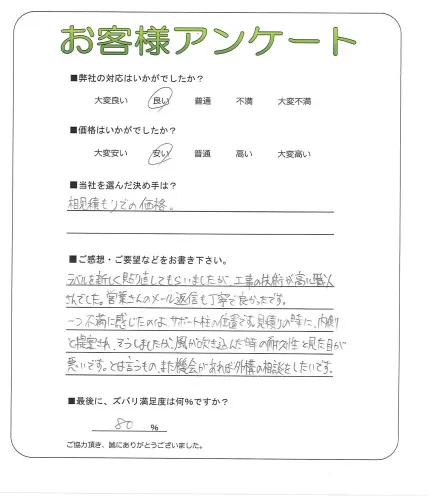 お客様アンケート
■弊社の対応はいかがでしたか？
大変良い 良い 普通 不満 大変不満
■価格はいかがでしたか？
大変安い 安い 普通 高い 大変高い
■当社を選んだ決め手は？
相見積もりでの価格。
■ご感想・ご要望などをお書き下さい。
を新しく見り直してもらいましたが、工事の技術が高い職人
さんでした。営業さんのメール返信も丁寧で良かったです。
一つ不満に感じたのは、サポート柱の位置です。見積りの時に、内側
と提案され、そうしましたが、風が吹き込んだ時の耐久性と見た目が
悪いです。とは言うもの、また機会があれば外構の相談をしたいです。
■最後に、ズバリ満足度は何%ですか？
80 %
ご協力頂き、誠にありがとうございました。